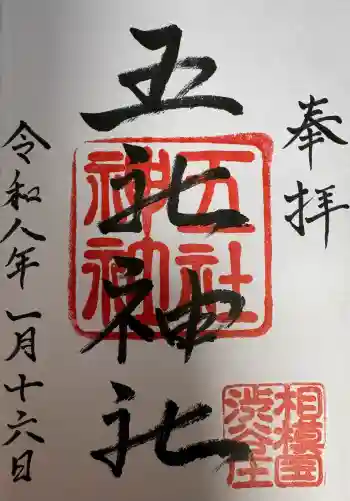 奉拝
五社神社
五社
御神
相模国
渋谷庄
令和八年一月十六日